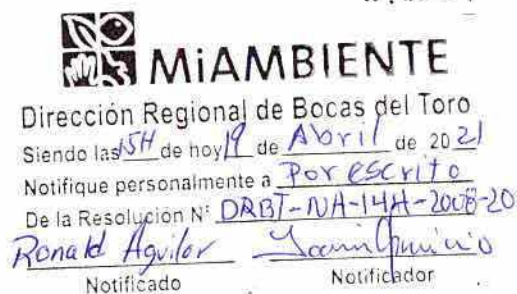 MiAMBIENTE
Dirección Regional de Bocas del Toro
Siendo las 15H de hoy 19 de Abril de 2021
Notifique personalmente a Por escrito
De la Resolución Nº DRBT-NA-14H-2008-20
Ronald Aguilar
Notificado Notificador